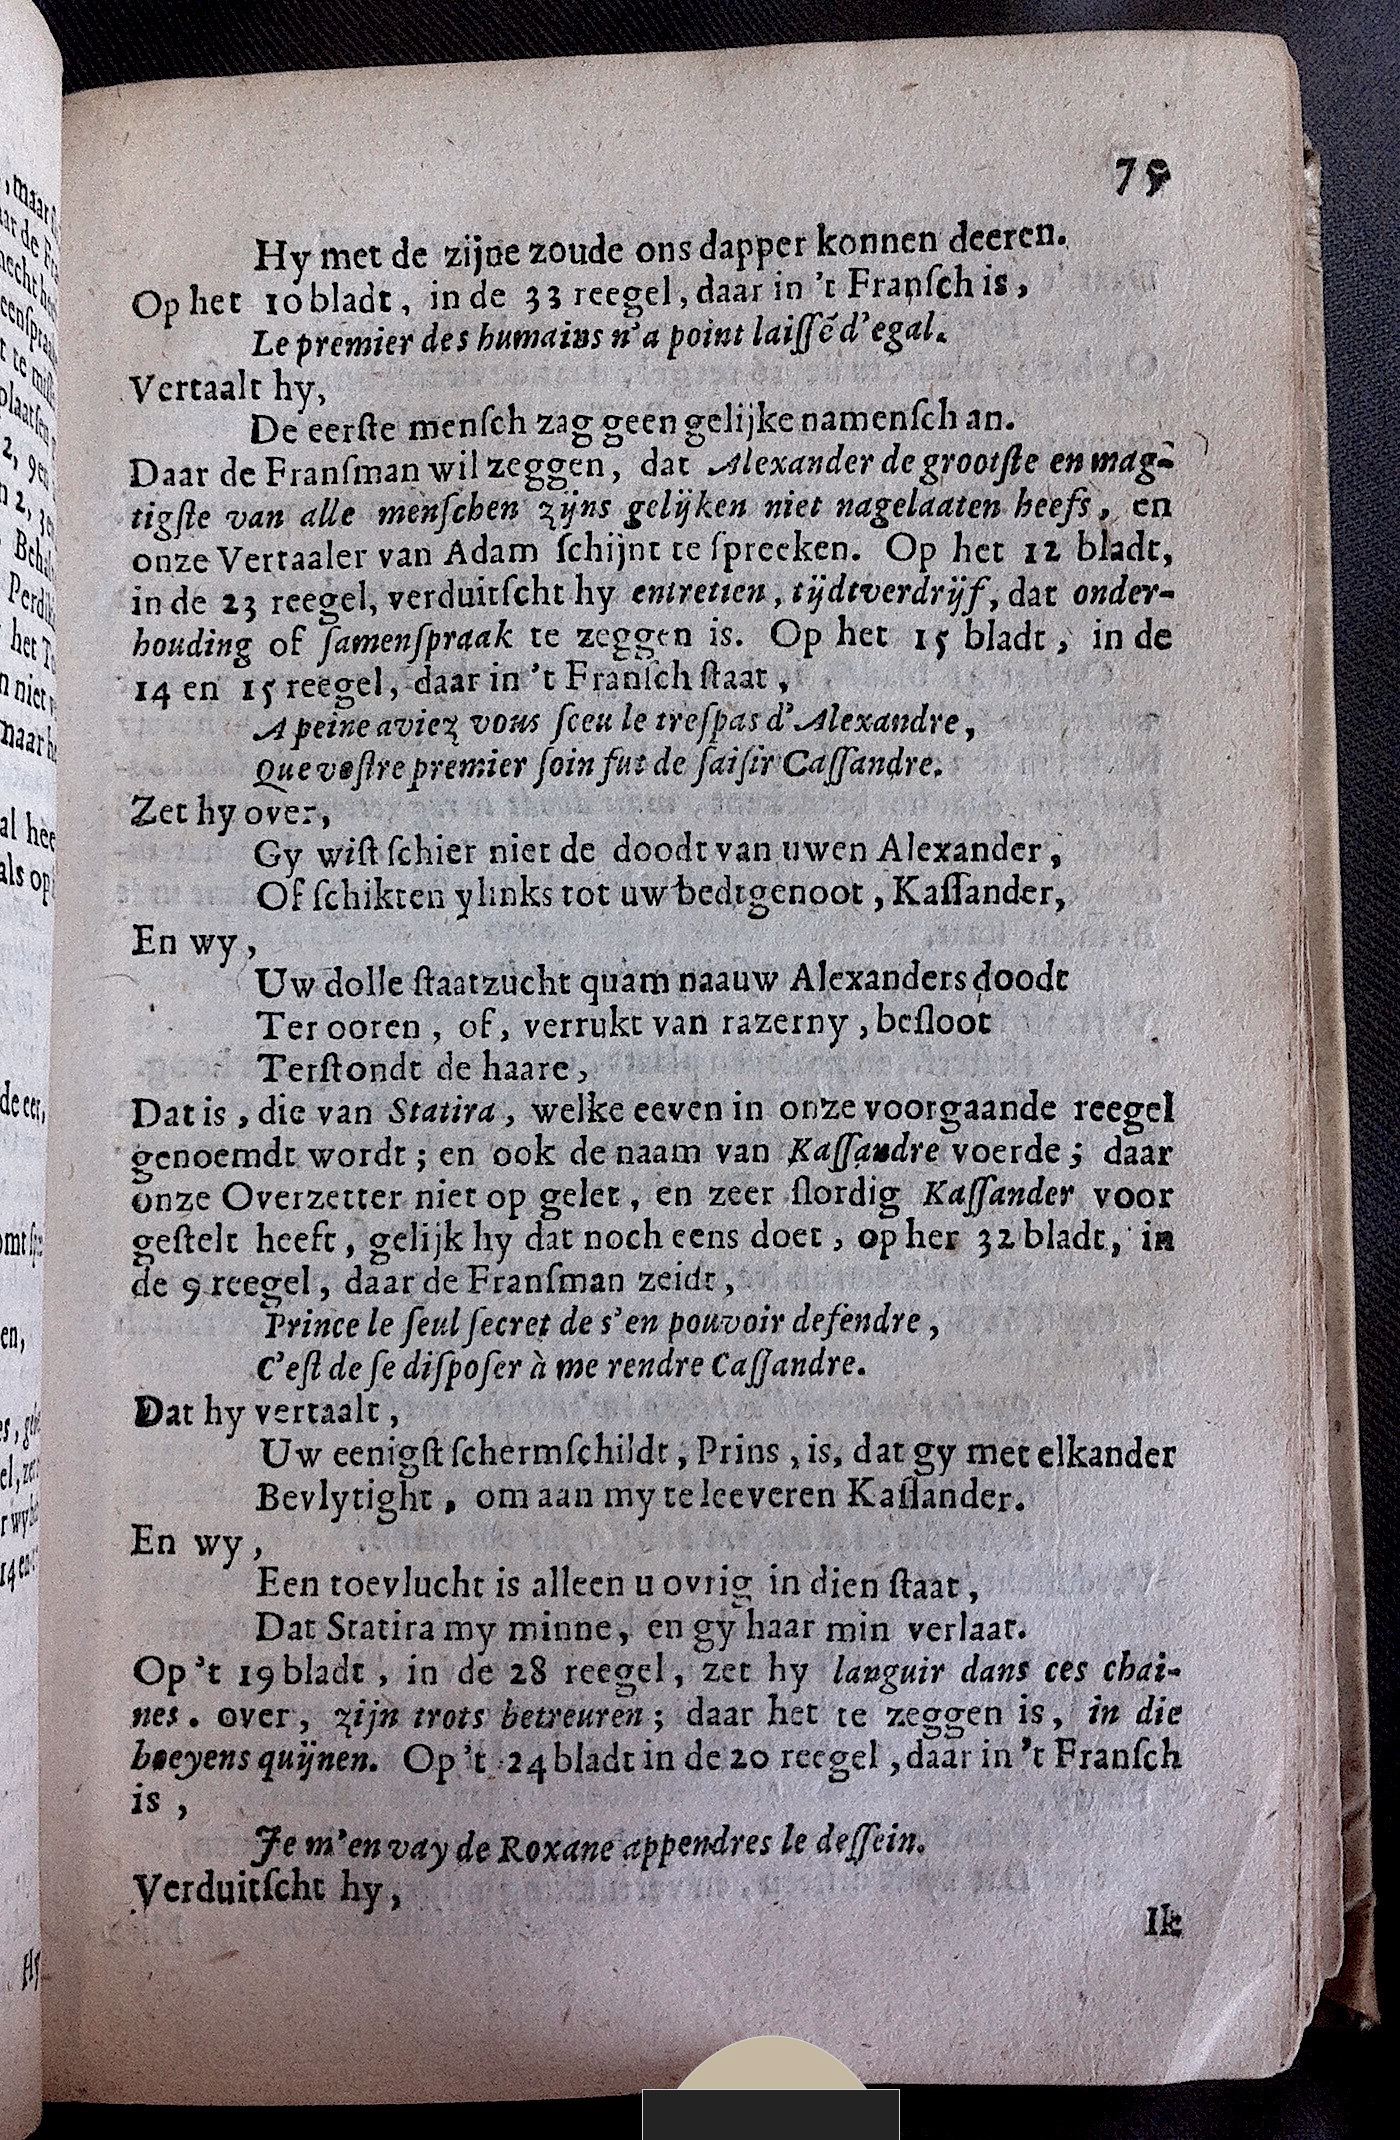 79
Hy met de zijne zoude ons dapper konnen deeren.
Op het 10 bladt, in de 33 reegel, daar in 't Franſch is,
Le premier des humains n'a point laiſſé d'egal.
Vertaalt hy,
De eerſte menſch zag geen gelijke namenſch an.
Daar de Franſman wil zeggen, dat Alexander de grootſte en mag-
tigſte van alle menſchen zijns gelijken niet nagelaaten heefs, en
onze Vertaaler van Adam ſchijnt te ſpreeken. Op het 12 bladt,
in de 23 reegel, verduitſcht hy entretien, tijdtverdrijf, dat onder-
houding of ſamenſpraak te zeggen is. Op het 15 bladt, in de
14 en 15 reegel, daar in 't Franſch ſtaat,
A peine aviez vous ſceu le treſpas d'Alexandre,
Que voſtre premier ſoin fut de ſaiſir Caſſandre.
Zet hy over,
Gy wiſt ſchier niet de doodt van uwen Alexander,
Of ſchikten ylinks tot uw bedtgenoot, Kaſſander,
En wy,
Uw dolle ſtaatzucht quam naauw Alexanders doodt
Ter ooren, of, verrukt van razerny, beſloot
Terſtondt de haare,
Dat is, die van Statira, welke eeven in onze voorgaande reegel
genoemdt wordt; en ook de naam van Kaſſandre voerde; daar
onze Overzetter niet op gelet, en zeer ſlordig Kaſſander voor
geſtelt heeft, gelijk hy dat noch eens doet, op her 32 bladt, in
de 9 reegel, daar de Franſman zeidt,
Prince le ſeul ſecret de s'en pouvoir defendre,
C'eſt de ſe diſpoſer à me rendre Caſſandre.
Dat hy vertaalt,
Uw eenigſt ſchermſchildt, Prins, is, dat gy met elkander
Bevlytight, om aan my te leeveren Kaſſander.
En wy,
Een toevlucht is alleen u ovrig in dien ſtaat,
Dat Statira my minne, en gy haar min verlaat.
Op 't 19 bladt, in de 28 reegel, zet hy languir dans ces chai-
nes. over, zijn trots betreuren; daar het te zeggen is, in die
boeyens quijnen. Op 't 24 bladt in de 20 reegel, daar in 't Franſch
is,
Je m'en vay de Roxane appendres le deſſein.
Verduitſcht hy,
Ik